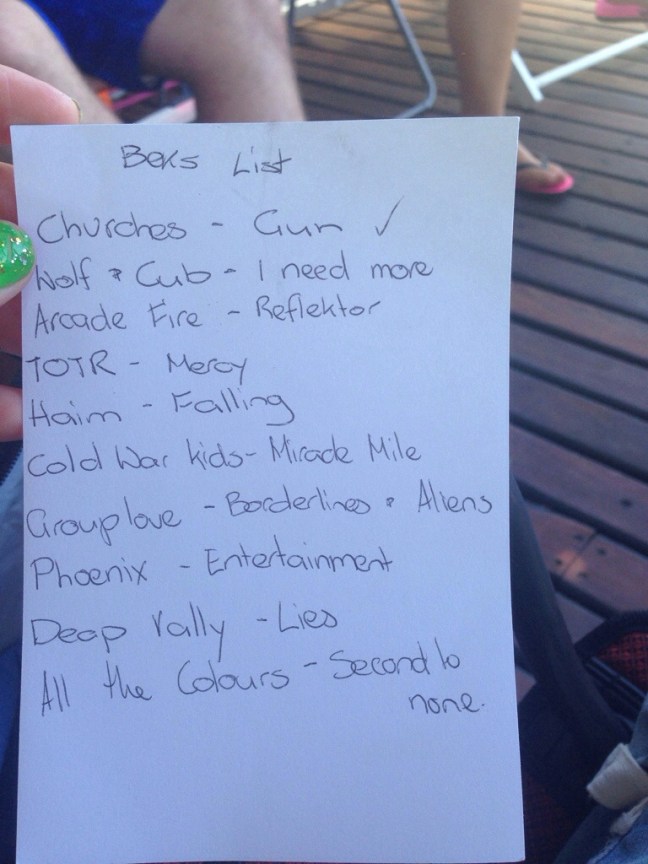 Beks List
Churches - Gun ✓
Wolf & Cub - I need more
Arcade Fire - Reflektor
TOTR - Mercy
Haim - Falling
Cold War kids - Miracle Mile
Grouplove - Borderlines & Aliens
Phoenix - Entertainment
Deap Vally - Lies
All the Colours - Second to
none.